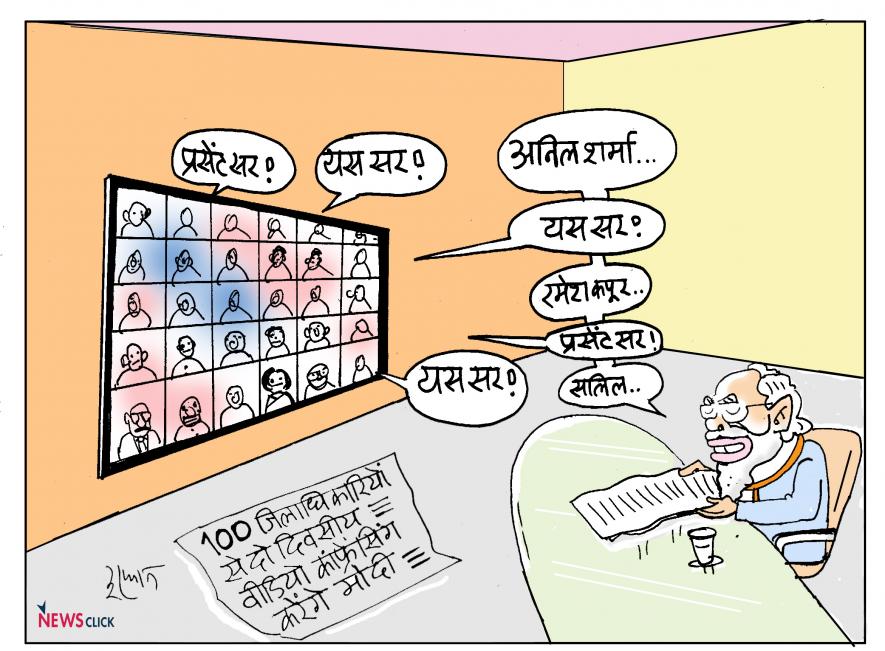 प्रसेंट सर!
यस सर!
अनिल शर्मा...
यस सर!
रमेश कपूर..
प्रसेंट सर!
सलिल..
यस सर!
100 जिलाधिकारियों
से दो दिवसीय
वीडियो कांफ्रेंसिंग
करेंगे मोदी
NEWS CLICK